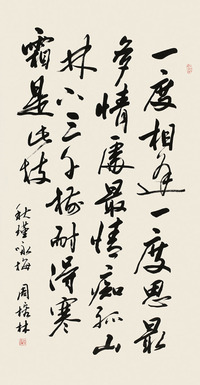 一度相逢一度思最
多情處最情痴孤山
林下三千樹耐得寒
霜是此枝
秋瑾咏梅 周培林